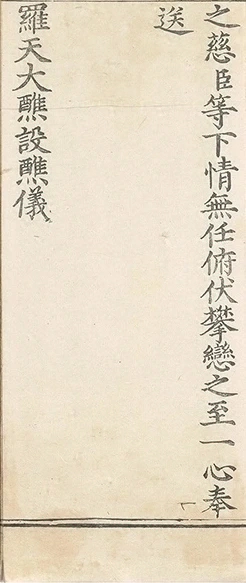 之慈臣等下情無任俯伏攀戀之至一心奉
送
羅天大醮設醮儀